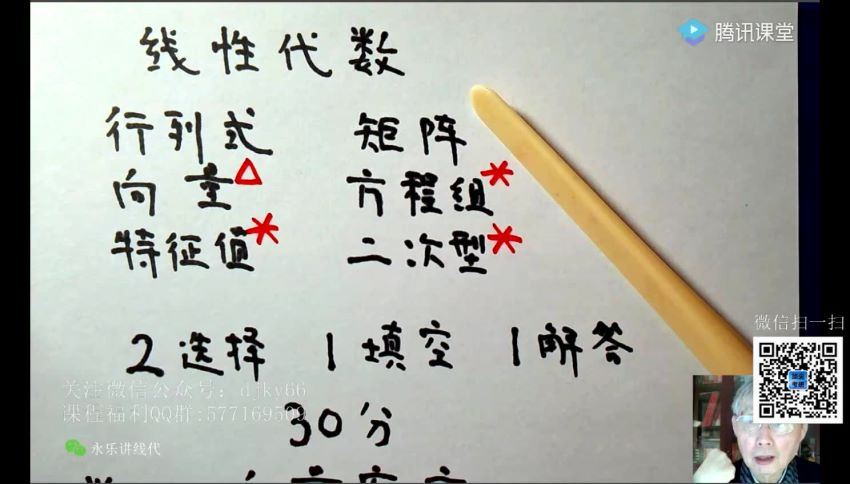 腾讯课堂
线性代数
行列式 矩阵
向量△ 方程组*
特征值* 二次型*
微信扫一扫
2选择 1填空 1解答
关注微信公众号：djky66
课程福利QQ群:577169509
30分
永乐讲线代